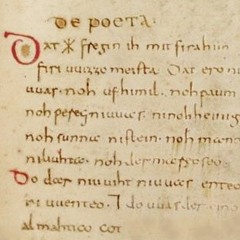 DE POETA.
Dat ᚼ fregin ih mit firahim
firi uuizzo meista Dat ero ni
uuas. noh ufhimil. noh paum
noh pereg ni uuas. ninohheinig
noh sunna nistein. noh mano
niliuhta. noh der mareo seo.
Do dar niuuiht niuuas enteo
ni uuenteo. ⁊ do uuas der eino
almahtico cot